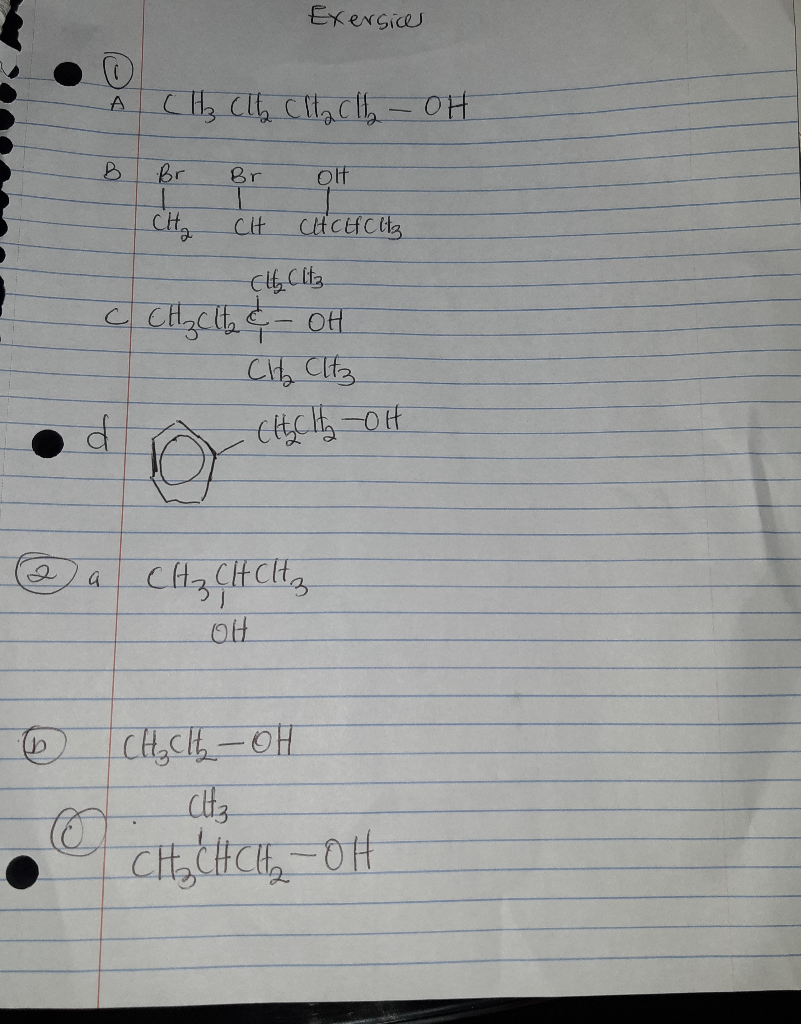 Exersices
①
A CH₃ CH₂ CH₂CH₂ — OH
B Br Br OH
| | |
CH₂ CH CHCHCH₃
CH₂CH₃
|
C CH₃CH₂ C — OH
|
CH₂ CH₃
d CH₂CH₂—OH
② a CH₃CHCH₃
|
OH
ⓑ CH₃CH₂—OH
CH₃
|
ⓒ CH₃CHCH₂—OH